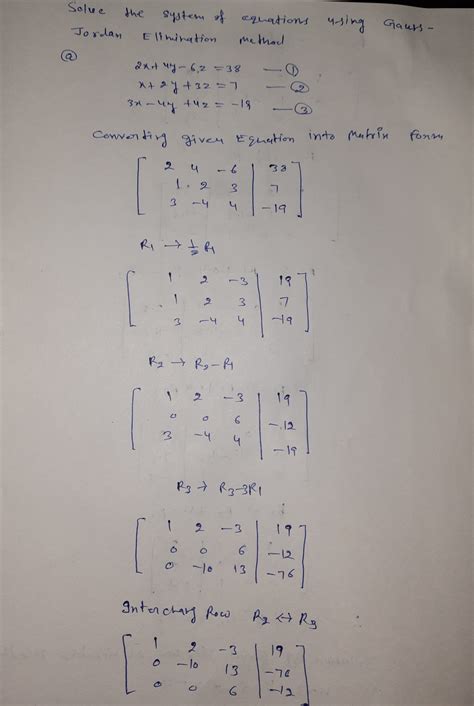 Solve the system of equations using Gauss-
Jordan Elimination method
(a)
2x+4y-6z=38 —(1)
x+2y+3z=7 —(2)
3x-4y+4z=-19 —(3)
Converting given Equation into Matrix form
2 4 -6 | 38
1 2 3 | 7
3 -4 4 | -19
R1 → 1/2 R1
1 2 -3 | 19
1 2 3 | 7
3 -4 4 | -19
R2 → R2-R1
1 2 -3 | 19
0 0 6 | -12
3 -4 4 | -19
R3 → R3-3R1
1 2 -3 | 19
0 0 6 | -12
0 -10 13 | -76
Interchang Row R2 ↔ R3
1 2 -3 | 19
0 -10 13 | -76
0 0 6 | -12